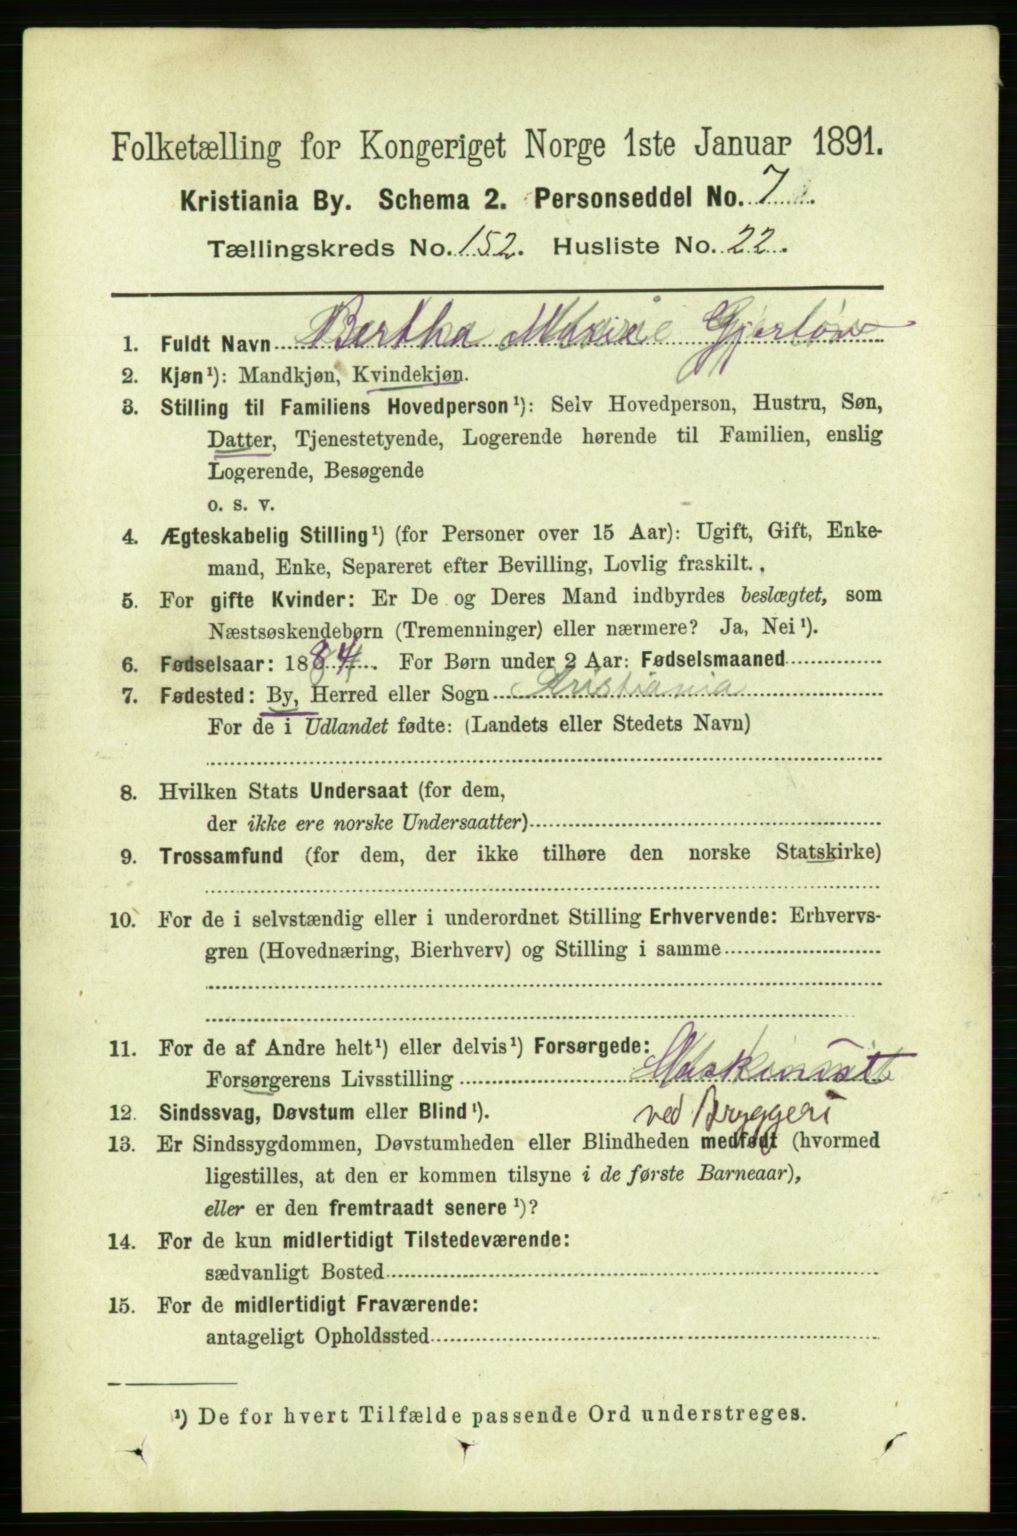 Folketælling for Kongeriget Norge 1ste Januar 1891.
Kristiania By. Schema 2. Personseddel No. 7.
Tællingskreds No. 152. Husliste No. 22.
1. Fuldt Navn Bertha Marie Gjerløw
2. Kjøn¹): Mandkjøn, Kvindekjøn.
3. Stilling til Familiens Hovedperson¹): Selv Hovedperson, Hustru, Søn,
Datter, Tjenestetyende, Logerende hørende til Familien, enslig
Logerende, Besøgende
o. s. v.
4. Ægteskabelig Stilling¹) (for Personer over 15 Aar): Ugift, Gift, Enke-
mand, Enke, Separeret efter Bevilling, Lovlig fraskilt.
5. For gifte Kvinder: Er De og Deres Mand indbyrdes beslægtet, som
Næstsøskendebørn (Tremenninger) eller nærmere? Ja, Nei¹).
6. Fødselsaar: 1884. For Børn under 2 Aar: Fødselsmaaned
7. Fødested: By, Herred eller Sogn Kristiania
For de i Udlandet fødte: (Landets eller Stedets Navn)
8. Hvilken Stats Undersaat (for dem,
der ikke ere norske Undersaatter)
9. Trossamfund (for dem, der ikke tilhøre den norske Statskirke)
10. For de i selvstændig eller i underordnet Stilling Erhvervende: Erhvervs-
gren (Hovednæring, Bierhverv) og Stilling i samme
11. For de af Andre helt¹) eller delvis¹) Forsørgede:
Forsørgerens Livsstilling Maskinist
ved Bryggeri
12. Sindssvag, Døvstum eller Blind¹).
13. Er Sindssygdommen, Døvstumheden eller Blindheden medfødt (hvormed
ligestilles, at den er kommen tilsyne i de første Barneaar),
eller er den fremtraadt senere¹)?
14. For de kun midlertidigt Tilstedeværende:
sædvanligt Bosted
15. For de midlertidigt Fraværende:
antageligt Opholdssted
¹) De for hvert Tilfælde passende Ord understreges.